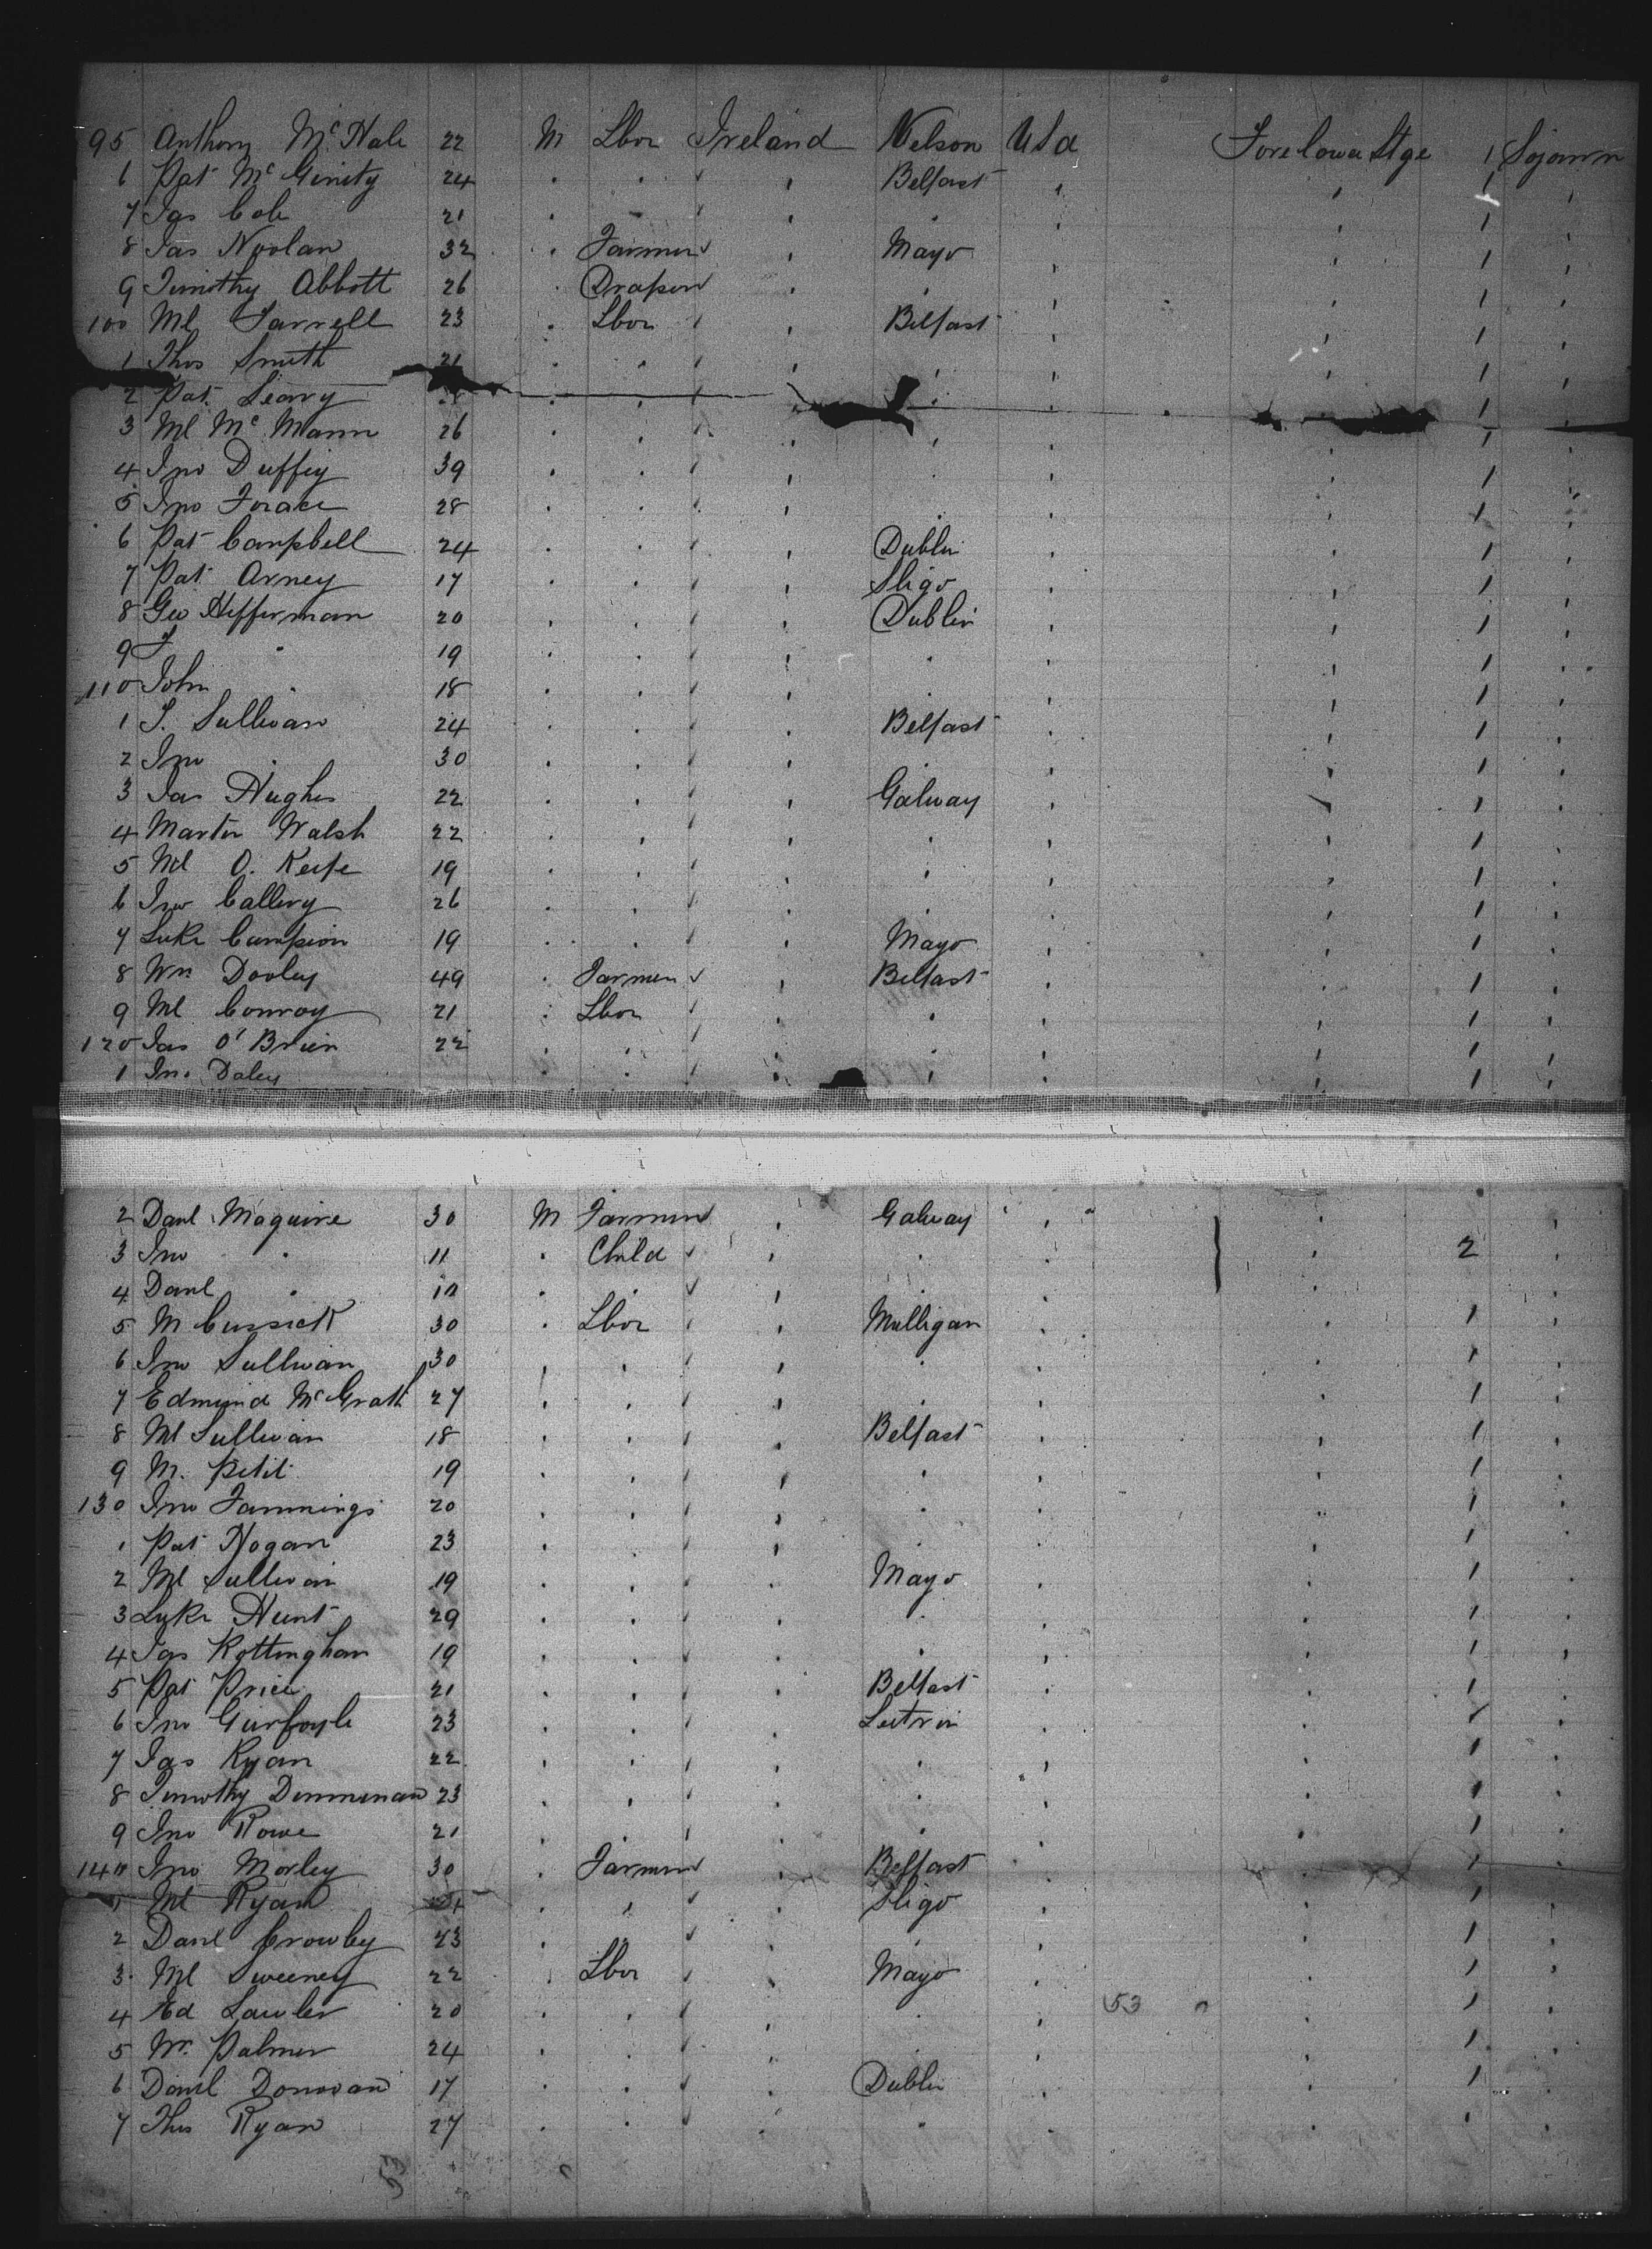 95 Anthony McHale 22 M Lbor Ireland Nelson U S a Fore lower Stge 1 Sojourn
6 Pat McGinity 24 Belfast 1
7 Jas Cole 21 1
8 Jas Noolan 32 Farmer Mayo 1
9 Timothy Abbott 26 Draper 1
100 Ml Farrell 23 Lbor Belfast 1
1 Thos Smith 21 1
2 Pat Leary 1
3 Ml McMann 26 1
4 Jno Duffiy 39 1
5 Jno 28 1
6 Pat Campbell 24 Dublin 1
7 Pat Arney 17 Sligo 1
8 Geo Hefferman 20 Dublin 1
9 J 19 1
110 John 18 1
1 J. Sullivan 24 Belfast 1
2 Jno 30 1
3 Jas Hughes 22 Galway 1
4 Martin Walsh 22 1
5 Ml O. Keefe 19 1
6 Jno Callery 26 1
7 Luke Campion 19 Mayo 1
8 Wm Dooley 49 Farmer Belfast 1
9 Ml Conroy 21 Lbor 1
120 Jas O'Brien 22 1
1 Jno Daley 1
2 Danl Maguire 30 M Farmer Galway
3 Jno 11 Child 2
4 Danl 10
5 M Cussick 30 Lbor Mulligan 1
6 Jno Sullivan 30 1
7 Edmund McGrath 27 1
8 Ml Sullivan 18 Belfast 1
9 M. Petit 19 1
130 Jno Jammings 20 1
1 Pat Hogan 23 1
2 Ml Sullivan 19 Mayo 1
3 Luke Hunt 29 1
4 Jas Rottingham 19 1
5 Pat Price 21 Belfast 1
6 Jno Guirfoyle 23 Leitrim 1
7 Jas Ryan 22 1
8 Timothy 23 1
9 Jno Rowe 21 1
140 Jno Morley 30 Farmer Belfast 1
1 Ml Ryan Sligo 1
2 Danl Crowley 23 1
3 Ml Sweeney 22 Lbor Mayo 1
4 Ed Lawler 20 53 1
5 Wm Palmer 24 1
6 Danl Donovan 17 Dublin 1
7 Thos Ryan 27 1
53